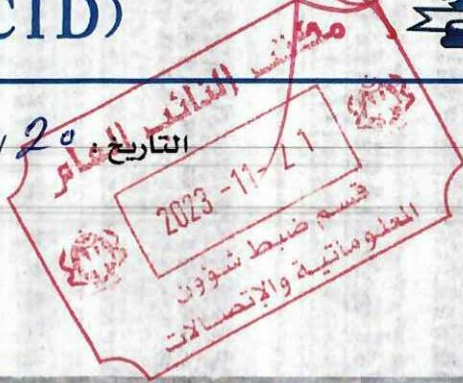 CID)
التاريخ: 20/
مكتب النائب العام
2023-11-21
قسم ضبط شؤون
المعلوماتية والإتصالات